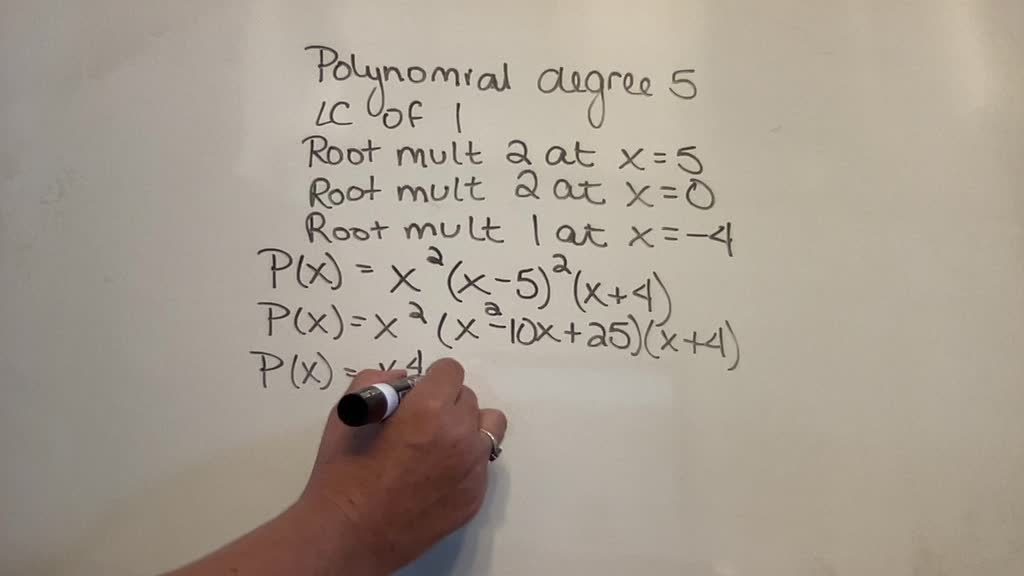 Polynomial degree 5
LC of 1
Root mult 2 at x=5
Root mult 2 at x=0
Root mult 1 at x=-4
P(x) = x²(x-5)²(x+4)
P(x)=x²(x²-10x+25)(x+4)
P(x) = x4